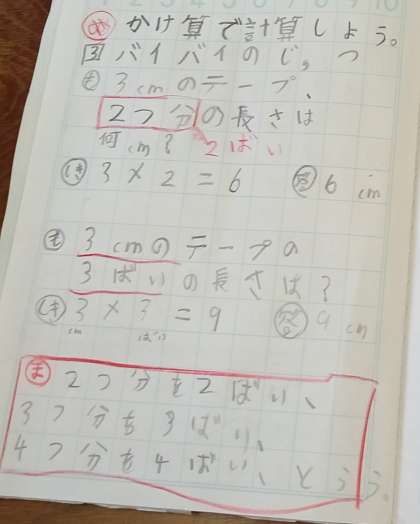 め かけ算で計算しよう。
3 バイバイのじゅつ
も 3cmのテープ、
2つ分の長さは
何cm? 2ばい
しき 3×2=6 答 6cm
も 3cmのテープの
3ばいの長さは?
しき 3×3=9 答 9cm
cm ばい
ま 2つ分を2ばい、
3つ分を3ばい、
4つ分を4ばい、という。